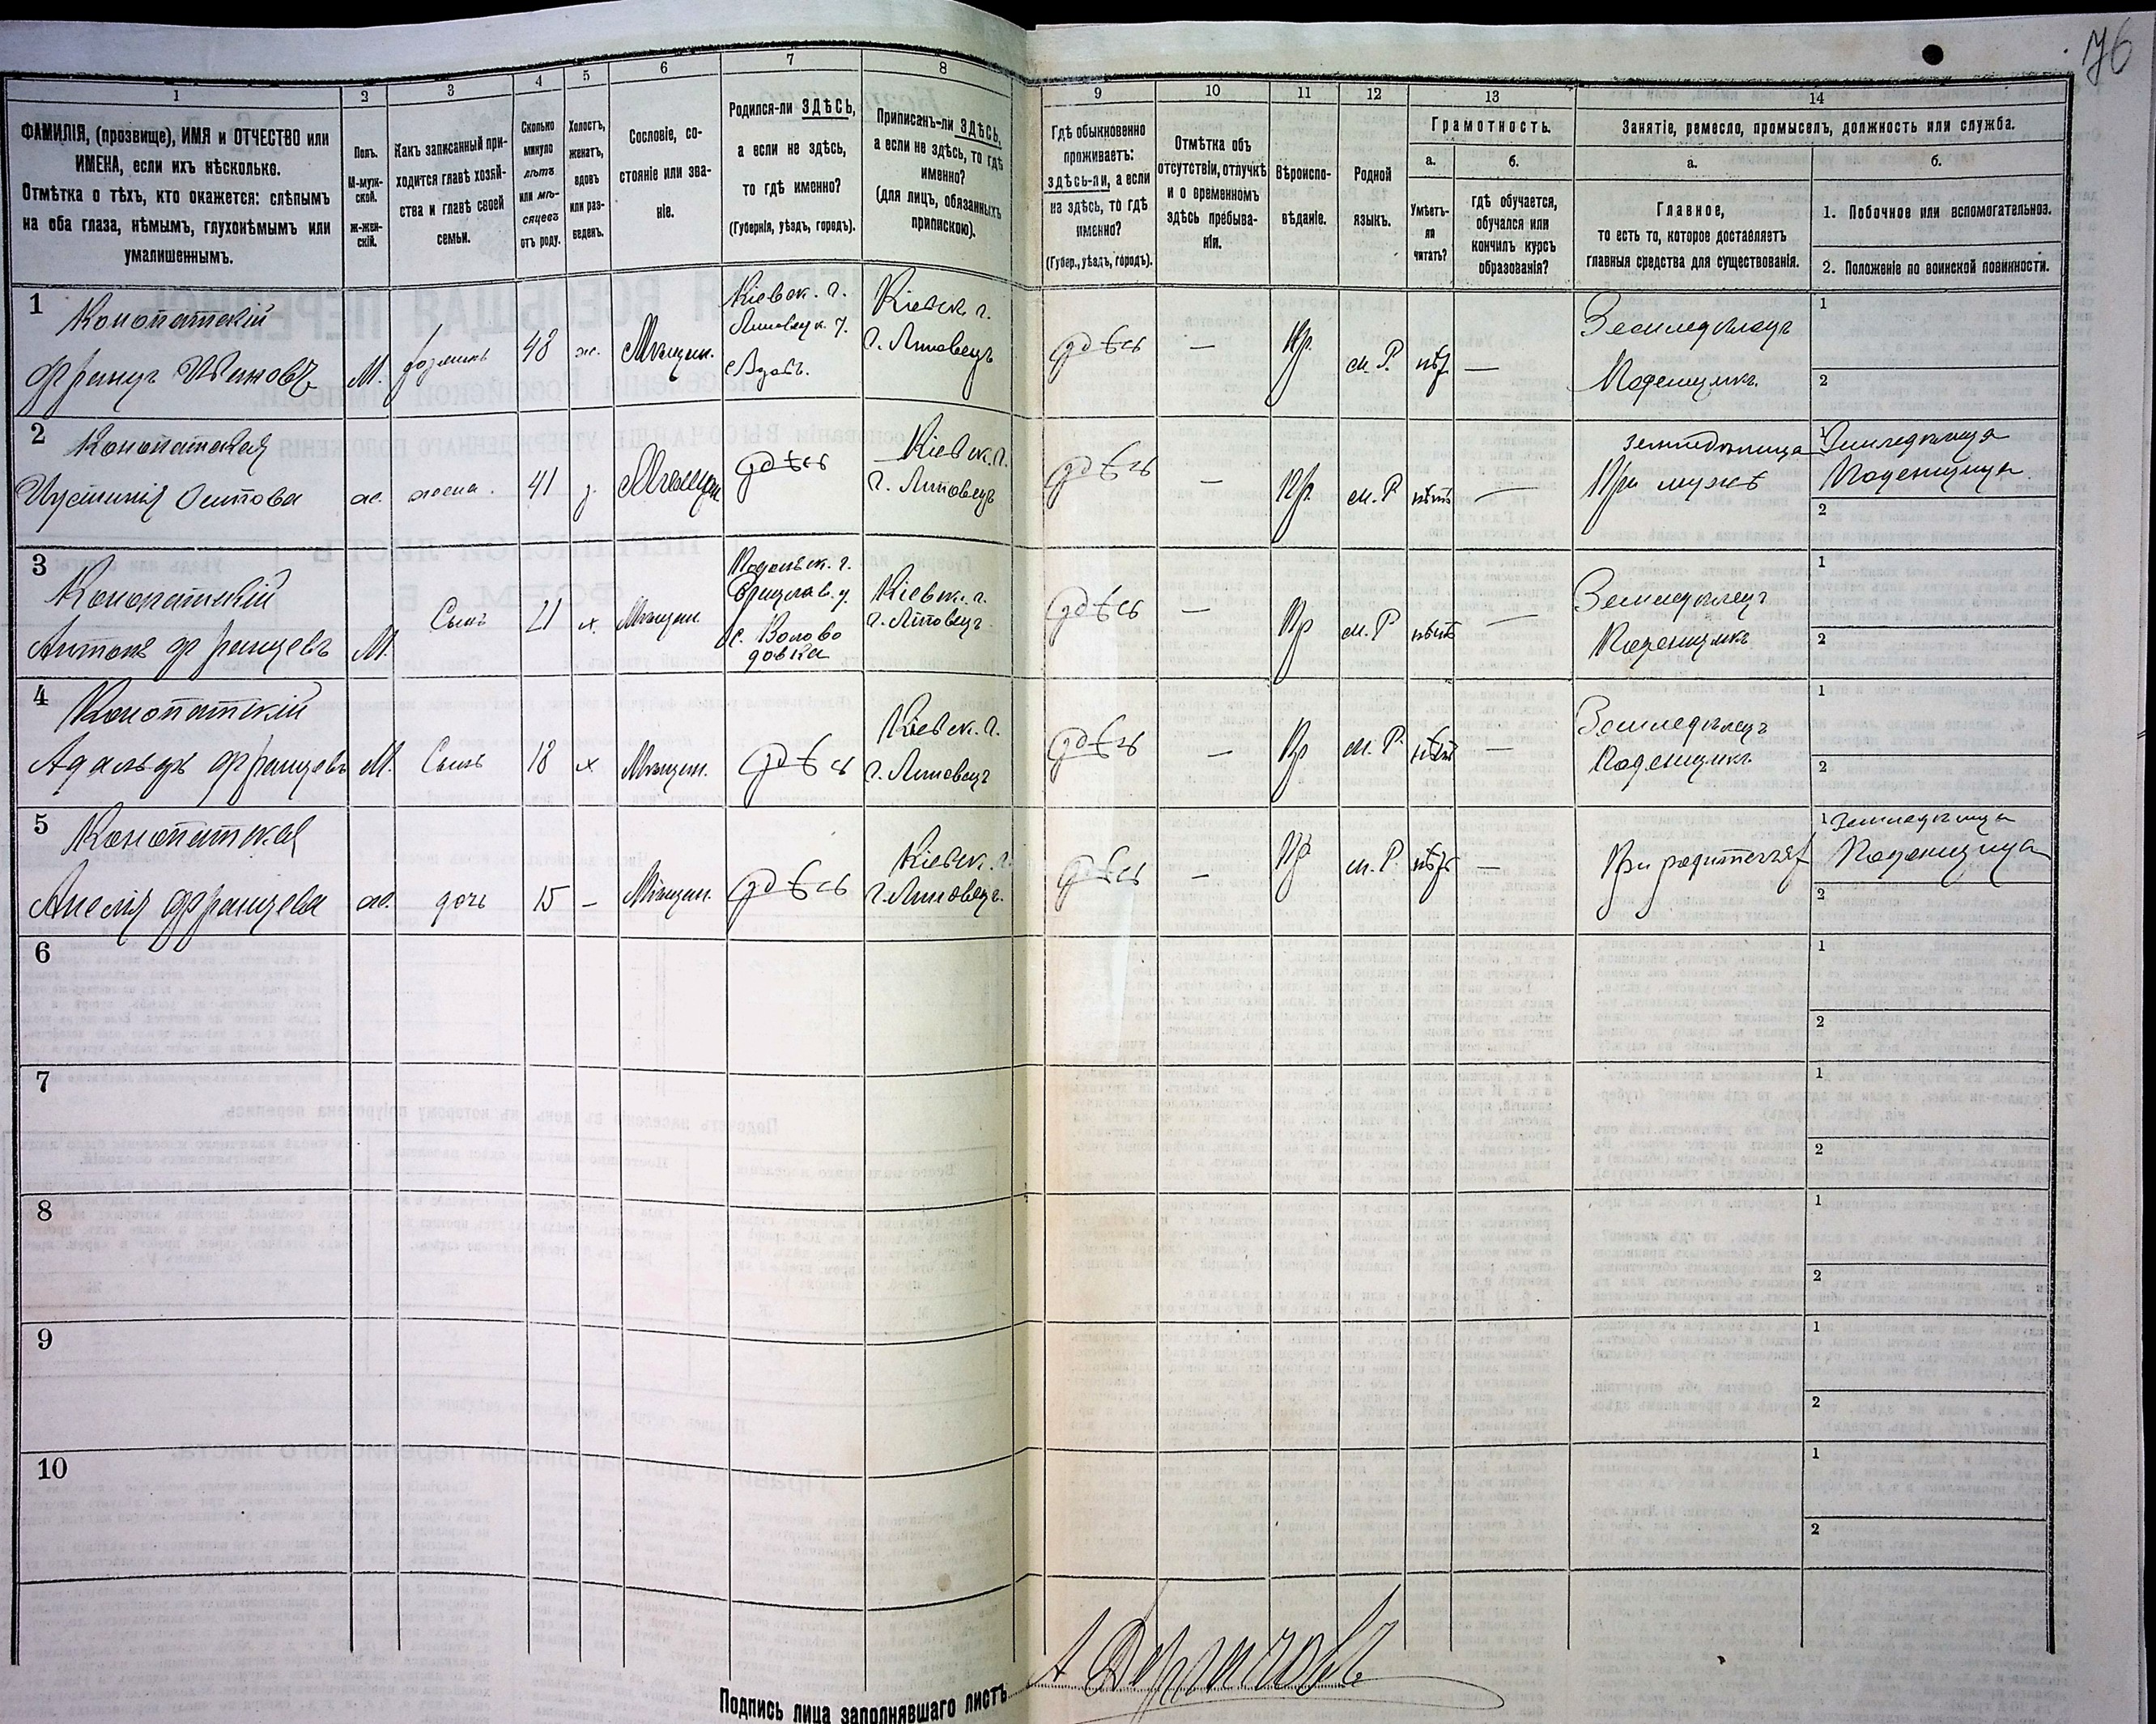 76
1
2
3
4
5
6
7
8
9
10
11
12
13
14
ФАМИЛІЯ, (прозвище), ИМЯ и ОТЧЕСТВО или
ИМЕНА, если ихъ нѣсколько.
Отмѣтка о тѣхъ, кто окажется: слѣпымъ
на оба глаза, нѣмымъ, глухонѣмымъ или
умалишеннымъ.
Полъ.
М-муж-
ской.
ж-жен-
скій.
Какъ записанный при-
ходится главѣ хозяй-
ства и главѣ своей
семьи.
Сколько
минуло
лѣтъ
или мѣ-
сяцевъ
отъ роду.
Холостъ,
женатъ,
вдовъ
или раз-
веденъ.
Сословіе, со-
стояніе или зва-
ніе.
Родился-ли ЗДѢСЬ,
а если не здѣсь,
то гдѣ именно?
(Губернія, уѣздъ, городъ).
Приписанъ-ли ЗДѢСЬ,
а если не здѣсь, то гдѣ
именно?
(для лицъ, обязанныхъ
припискою).
Гдѣ обыкновенно
проживаетъ:
здѣсь-ли, а если
не здѣсь, то гдѣ
именно?
(Губер., уѣздъ, городъ).
Отмѣтка объ
отсутствіи, отлучкѣ
и о временномъ
здѣсь пребыва-
ніи.
Вѣроиспо-
вѣданіе.
Родной
языкъ.
Грамотность.
а.
б.
Умѣетъ-
ли
читать?
гдѣ обучается,
обучался или
кончилъ курсъ
образованія?
Занятіе, ремесло, промыселъ, должность или служба.
а.
б.
Главное,
то есть то, которое доставляетъ
главныя средства для существованія.
1. Побочное или вспомогательное.
2. Положеніе по воинской повинности.
1
Конопатскій
Францъ Ивановъ
М.
хозяинъ
48
ж.
Мѣщан.
Кіевск. г.
Липовецк. у.
Кіевск г.
г. Липовецъ
здѣсь
—
Пр.
м. Р.
нѣт
—
Земледѣлецъ
Поденщикъ
1
2
2
Конопатская
Иустинія Осипова
ж.
жена.
41
з.
Мѣщан.
здѣсь
Кіевск. г.
г. Липовецъ
здѣсь
—
Пр.
м. Р
нѣтъ
—
земледѣлица
При мужѣ
1 Земледѣлица
Поденщица
2
3
Конопатскій
Антонъ Францевъ
М.
Сынъ
21
х.
Мѣщан.
Подольск. г.
Брацлав. у.
с. Волово
довка
Кіевск. г.
г. Липовецъ
здѣсь
—
Пр
м. Р
нѣтъ
—
Земледѣлецъ
Поденщикъ
1
2
4
Конопатскій
Адольфъ Францевъ
М.
Сынъ
18
х
Мѣщан.
здѣсь
Кіевск. г.
г. Липовецъ
здѣсь
—
Пр
м. Р.
нѣтъ
—
Земледѣлецъ
Поденщикъ
1
2
5
Конопатская
Анелія Францева
ж.
дочь
15
—
Мѣщан.
здѣсь
Кіевск. г.
г. Липовецъ.
здѣсь
—
Пр
м. Р.
нѣтъ
—
При родителяхъ
1 Земледѣлица
Поденщица
2
6
1
2
7
1
2
8
1
2
9
1
2
10
1
2
Подпись лица заполнявшаго листъ